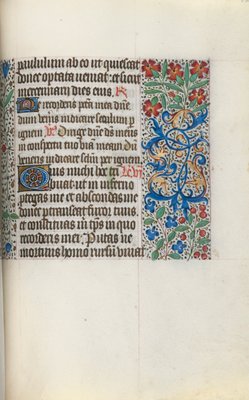 paululum ab eo ut quiescat
donec optata veniat et sicut
mercenarii dies eius. R
Ne recorderis pcta mea dne
dum veneris iudicare seculum p
ignem V Dirige dne ds meus
in conspectu tuo viam meam Du
veneris iudicare sclm per ignem.
Quis michi hoc tri Le vi
buat ut in inferno
ptegas me et abscondas me
donec ptranseat furor tuus.
et constituas m tps in quo
recorderis mei. Putas ne
mortuus homo rursu vivat